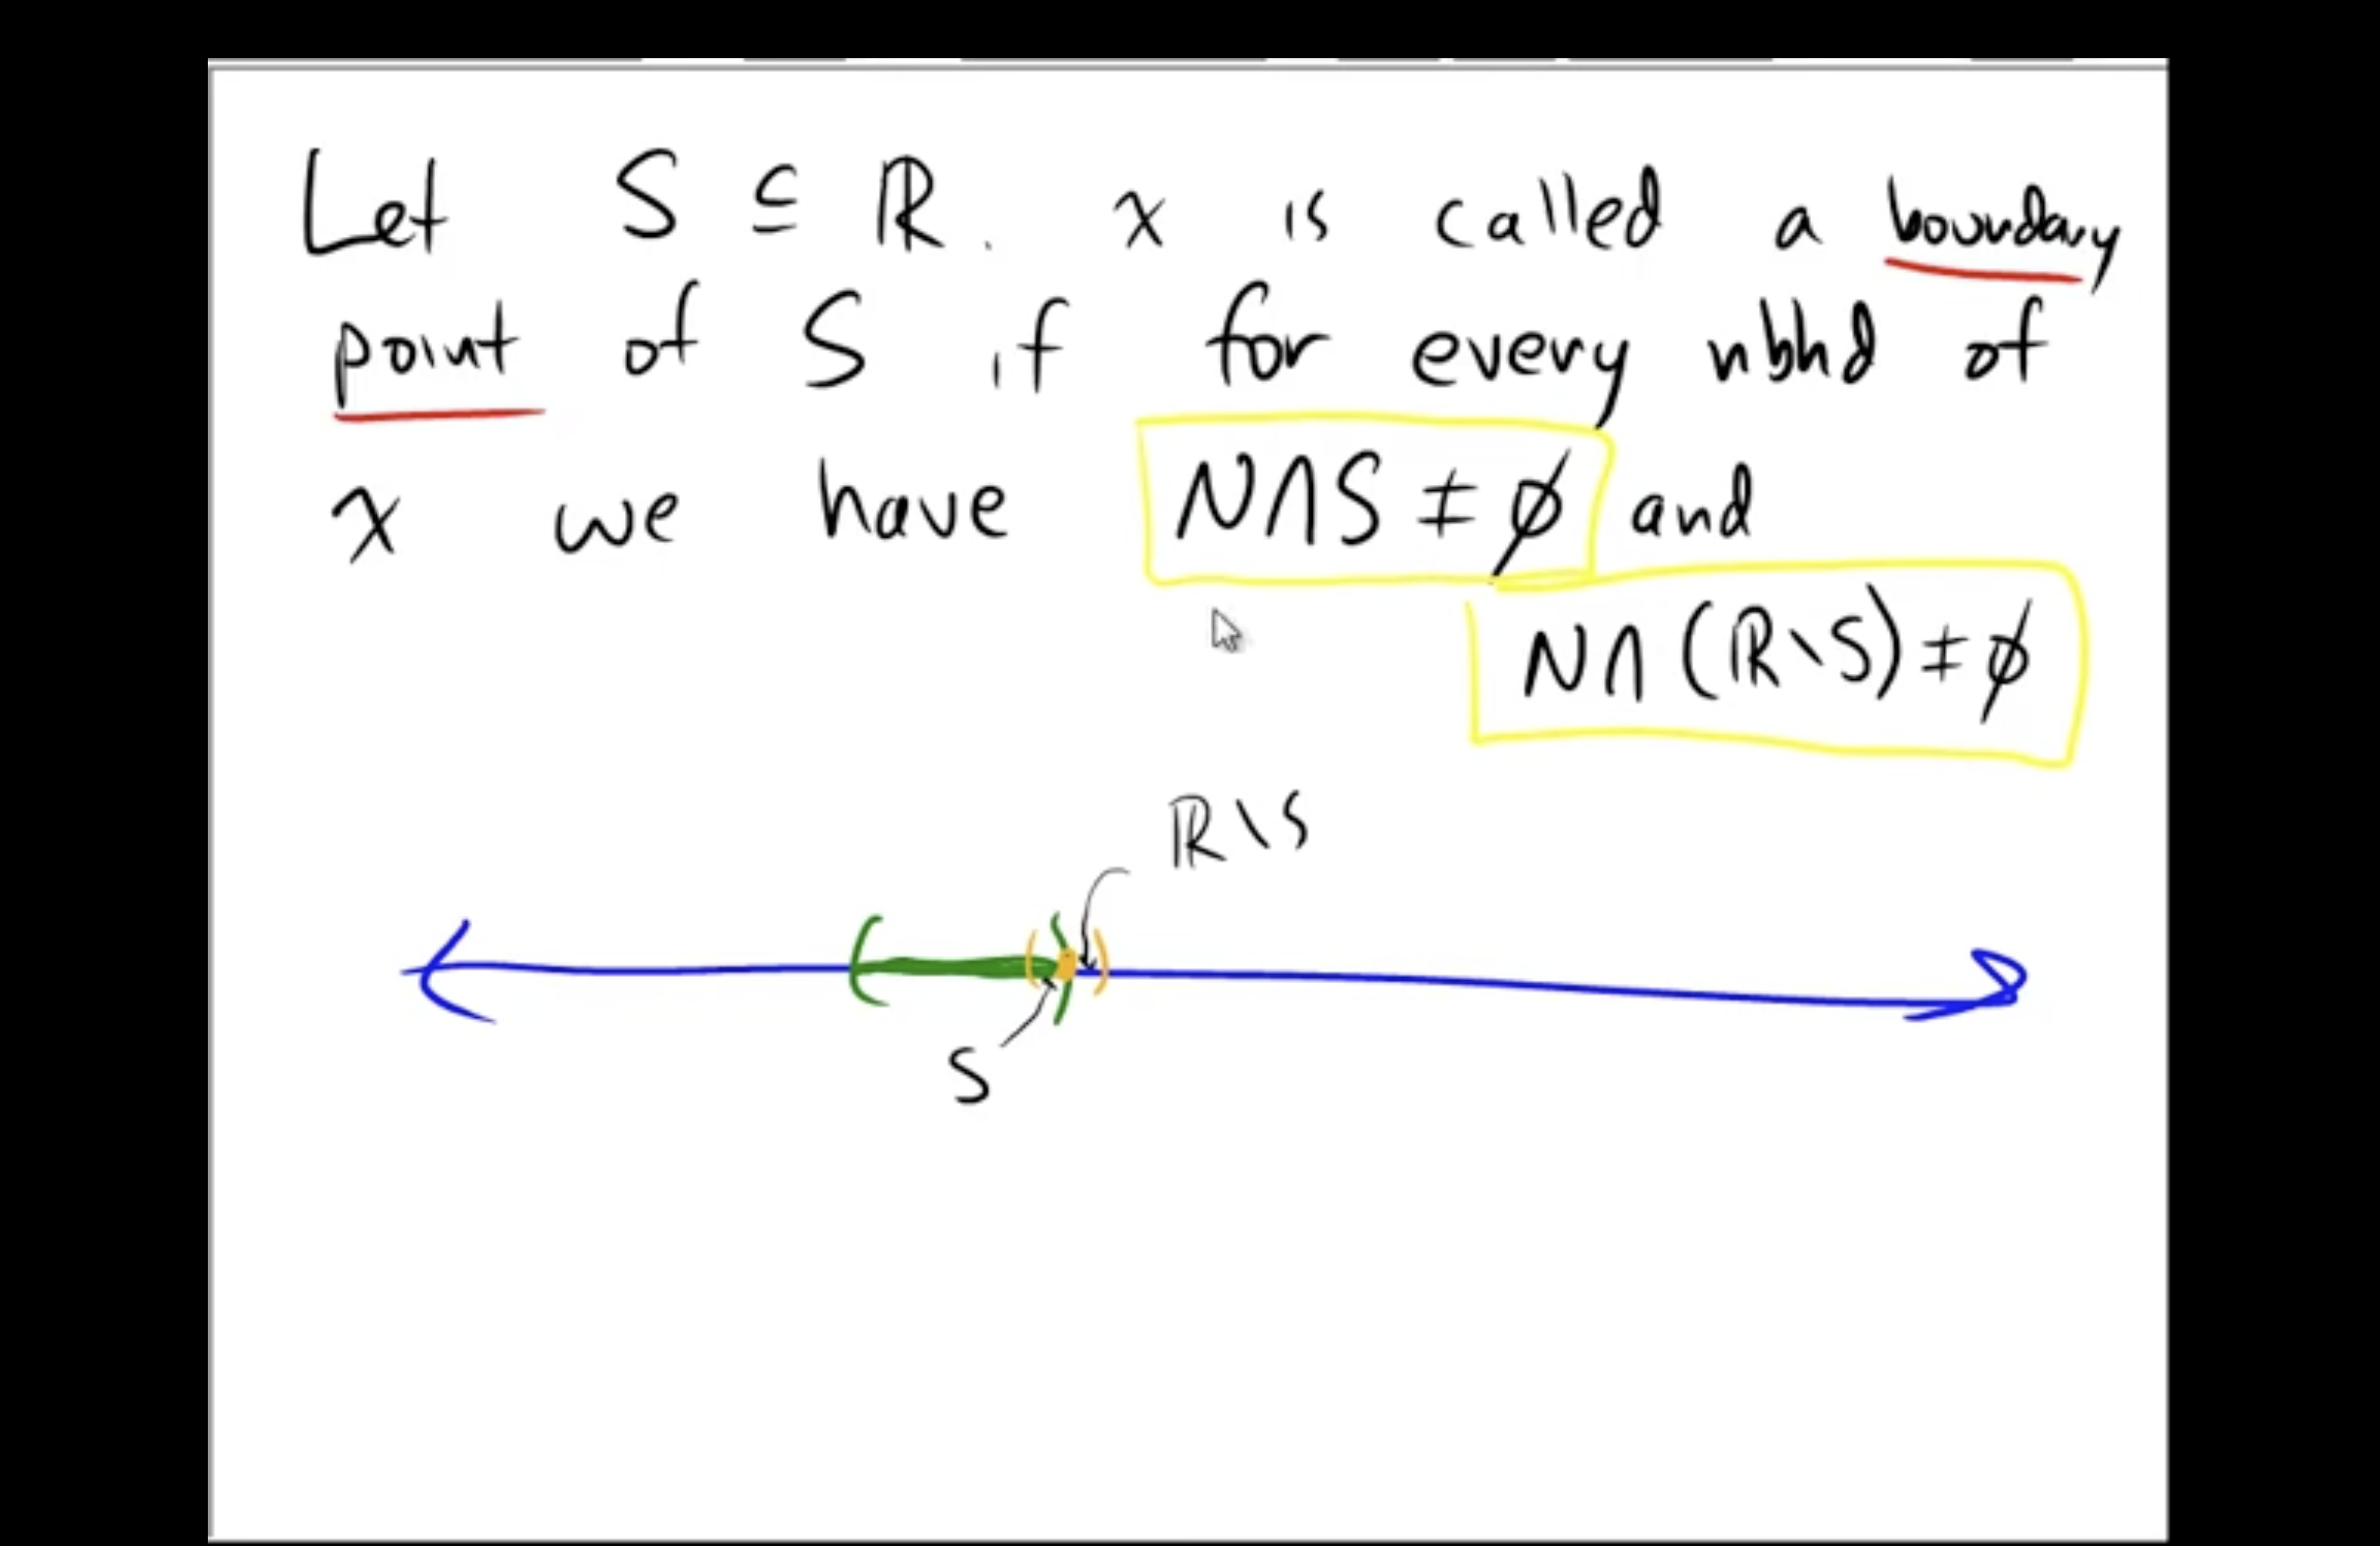 Let S ⊆ ℝ. x is called a boundary
point of S if for every nbhd of
x we have N∩S ≠ ∅ and
N∩(ℝ\S) ≠ ∅
ℝ\S
S